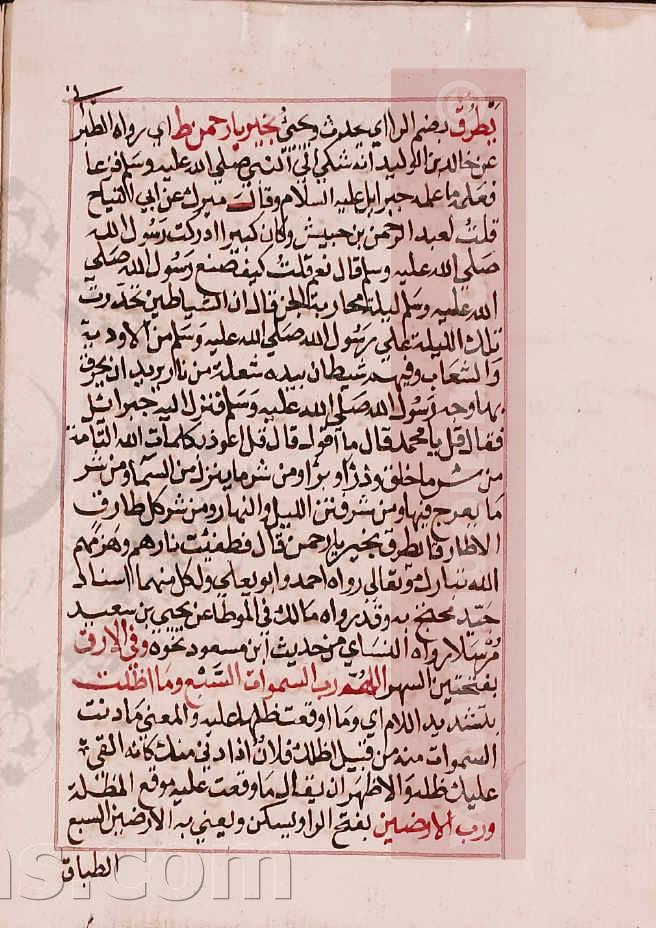 يطرق بضم الراء اي يحدث ويجئ بخير يا رحمن ط اي رواه الطبراني
عن خالد بن الوليد انه شكى الى النبي صلى الله عليه وسلم فزعا
فعلمه ما علمه جبرايل عليه السلام وقال ميرك عن ابي التياح
قلت لعبد الرحمن بن حبيش وكان كبيرا ادركت رسول الله
صلى الله عليه وسلم قال نعم قلت كيف صنع رسول الله صلى
الله عليه وسلم ليلة محاربة الجن قال ان الشياطين تحدرت
تلك الليلة على رسول الله صلى الله عليه وسلم من الاودية
والشعاب وفيهم شيطان بيده شعلة من نار يريد ان يحرق
بها وجه رسول الله صلى الله عليه وسلم فنزل اليه جبرائيل
فقال قل يا محمد قال ما اقول قال قل اعوذ بكلمات الله التامة
من شر ما خلق وذرا وبرا ومن شر ما ينزل من السماء ومن شر
ما يعرج فيها ومن شر فتن الليل والنهار ومن شر كل طارق
الا طارقا يطرق بخير يا رحمن قال فطفئت نارهم وهزمهم
الله تبارك وتعالى رواه احمد وابو يعلى ولكل منهما اسناد
جيد محتج به وقد رواه مالك في الموطا عن يحيى بن سعيد
مرسلا ورواه النساي من حديث ابن مسعود نحوه وفي الارق
بفتحتين السهر اللهم رب السموات السبع وما اظلت
بتشديد اللام اي وما اوقعت ظلها عليه والمعنى ما دنت
السموات منه من قبيل اظلك فلان اذا دنى منك كانه القى
عليك ظله والاظهر ان يقال ما وقعت عليه موقع المظلة
ورب الارضين بفتح الرا ويسكن ويعني به الارضين السبع
الطباق
ns.com